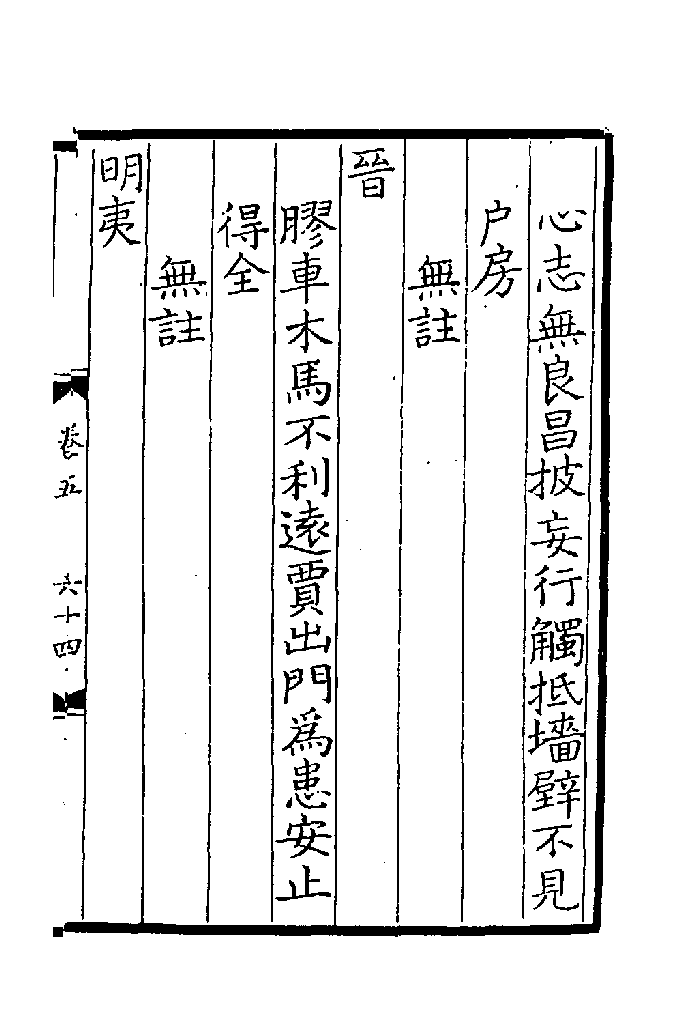 心志無良昌披妄行觸抵墻壁不見
户房
無註
晉
膠車木馬不利遠賈出門為患安止
得全
無註
明夷
卷五
六十四